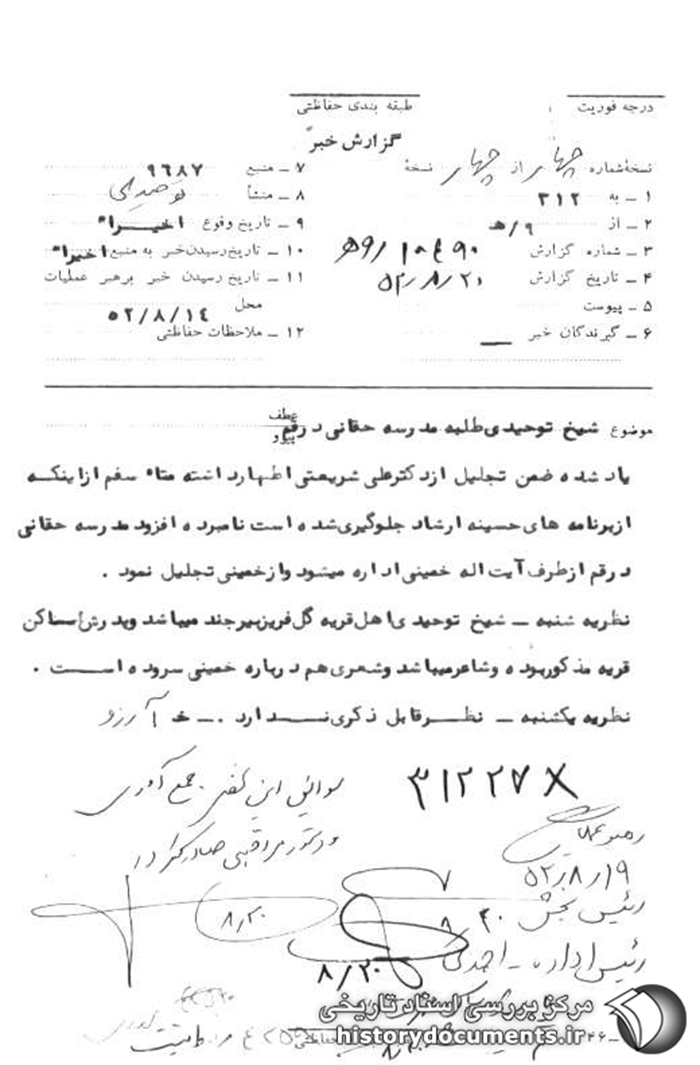 درجه فوریت
طبقه بندی حفاظتی
گزارش خبر
نسخهٔ شماره چهار از چهار نسخهٔ
۱ ـ به ۳۱۲
۲ ـ از ۹/هـ
۳ ـ شماره گزارش ۱۰۴۹۰/۹هـ
۴ ـ تاریخ گزارش ۵۲/۸/۲۰
۵ ـ پیوست
۶ ـ گیرندگان خبر
۷ ـ منبع ۹۶۸۷
۸ ـ منشأ توحیدی
۹ ـ تاریخ وقوع اخیراً
۱۰ ـ تاریخ رسیدن خبر به منبع اخیراً
۱۱ ـ تاریخ رسیدن خبر برهبر عملیات
محل ۵۲/۸/۱۴
۱۲ ـ ملاحظات حفاظتی
موضوع شیخ توحیدی طلبه مدرسه حقانی در قم
عطف
پیرو
یاد شده ضمن تجلیل از دکتر علی شریعتی اظهار داشته متاسفم از اینکه
از برنامه های حسینه ارشاد جلوگیری شده است نامبرده افزود مدرسه حقانی
در قم از طرف آیت اله خمینی اداره میشود و از خمینی تجلیل نمود .
نظریه شنبه ـ شیخ توحیدی اهل قریه گل فریز بیرجند میباشد و پدرش ساکن
قریه مذکور بوده و شاعر میباشد و شعری هم درباره خمینی سروده است .
نظریه یکشنبه ـ نظر قابل ذکری ندارد . ـ خ آرزو
۳۱۲۲۷۸
سوابق این شخص جمع آوری
و دستور مراقبتی صادر گردد
رهبر عملیات
۵۲/۸/۱۹
رئیس بخش
۸/۲۰
رئیس اداره ـ احمدی
۸/۲۰
مرکز بررسی اسناد تاریخی
historydocuments.ir